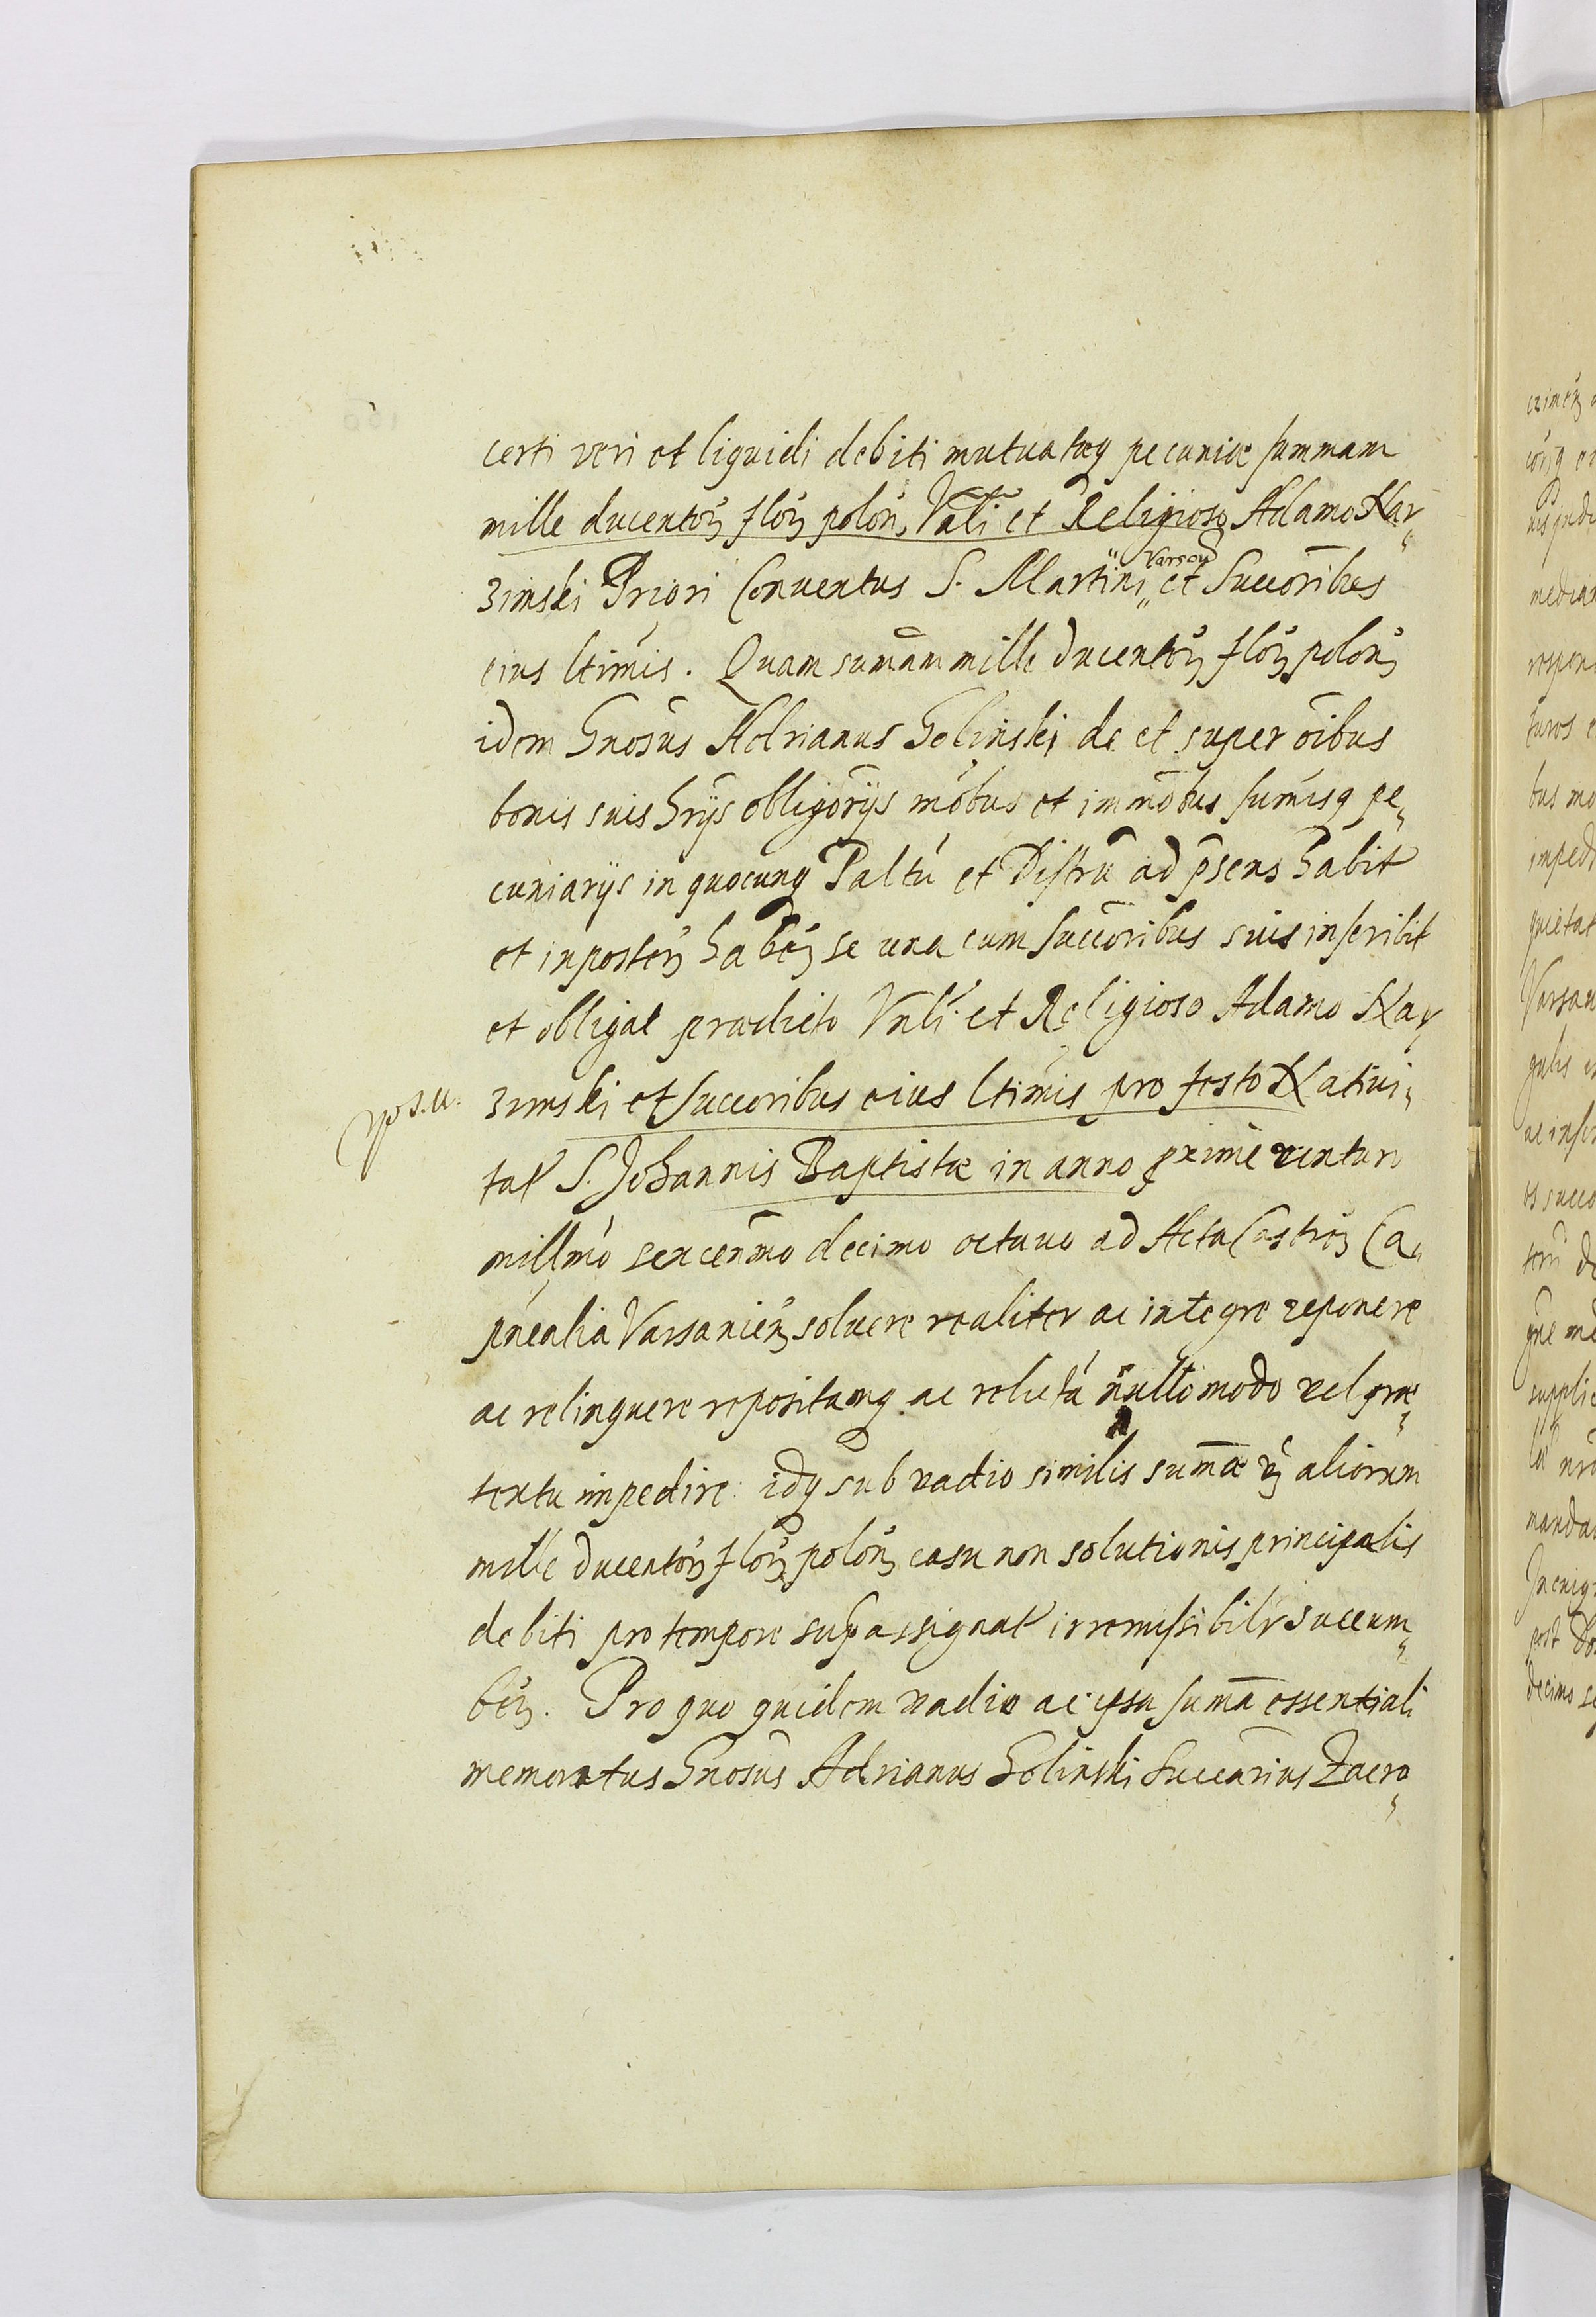 certi veri et liquidi debiti mutuatæq pecuniæ summam
mille ducentoꝝ floꝝ poloꝝ, Vnli et Religioso Adamo Nar„
zimski Priori Conuentus S. Martini „Varsou„ et Succoribus
eius ltimis. Quam summam mille ducentoꝝ floꝝ poloꝝ
idem Gnosus Adrianus Golinski de et super oibus
bonis suis hrijs obligorijs mobus et immobus sumisq pe„
cuniarijs in quocunq Paltu et Distru ad psens habit
et inposteꝝ habeꝝ se una cum succoribus suis inscribit
et obligat prædicto Vnli et Religioso Adamo Nar„
zimski et succoribus eius ltimis pro festo Natiui„
tat S. Johannis Baptistæ in anno proxime venturo
millmo sexcenmo decimo octauo ad Acta Castroꝝ Ca„
pnealia Varsanieꝝ soluere realiter ac integre reponere
ac relinquere repositamq ac relictá nullo modo vel præ„
textu impedire idq sub vadio similis sumæ vꝫ aliorum
mille ducentoꝝ floꝝ poloꝝ casu non solutionis principalis
debiti pro tempore sup assignat irremissibilr succum„
beꝝ. Pro quo quidem vadio ac ipsa suma essentiali
memoratus Gnosus Adrianus Golinski Succarius Zacro„